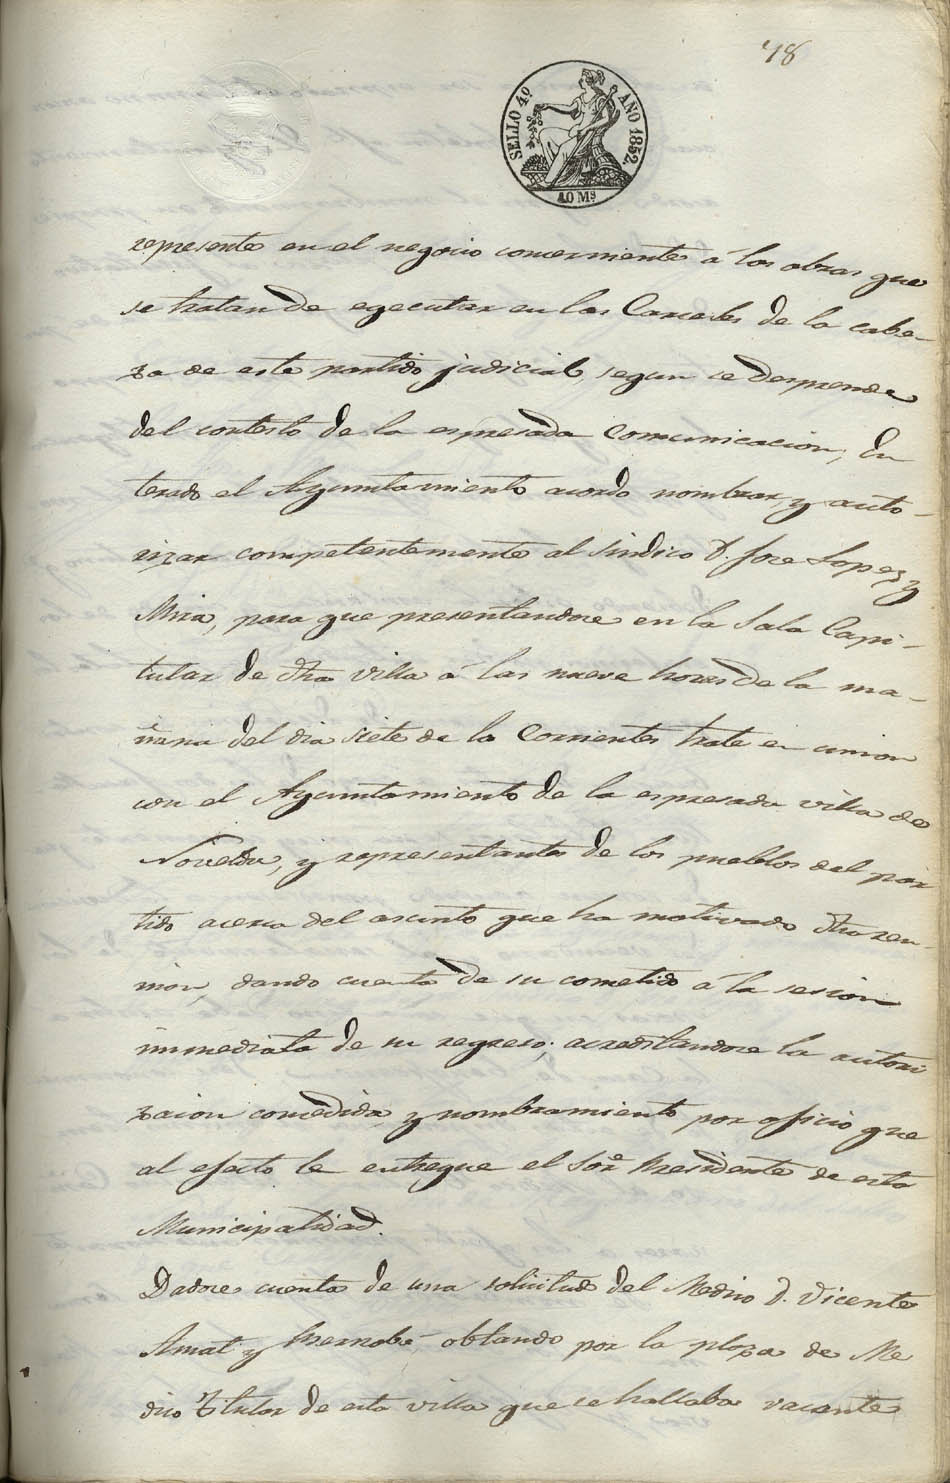 48
SELLO 4º AÑO 1852
40 Mˢ
represente en el negocio concerniente á los obras que
se tratan de egecutar en las Carceles de la cabe-
za de este partido judicial, segun se desprende
del contesto de la espresada comunicacion; En
terado el Ayuntamiento acordo nombrar, y auto-
rizar competentemente al Sindico D. Jose Lopez y
Mira, para que presentandose en la Sala Capi-
tular de dha villa á las nueve horas de la ma-
ñana del dia siete de los Corrientes trate en union
con el Ayuntamiento de la espresada villa de
Novelda, y representantes de los pueblos del par
tido acerca del asunto que ha motivado dha reu-
nion, dando cuenta de su cometido á la sesion
inmediata de su regreso; acreditandose la autori
zacion concedida, y nombramiento por oficio que
al efecto le entregue el Sor. Presidente de esta
Municipalidad.
Dadose cuenta de una solicitud del Medico D. Vicente
Amat y obtando por la plaza de Me
dico Titular de esta villa que se hallaba vacante